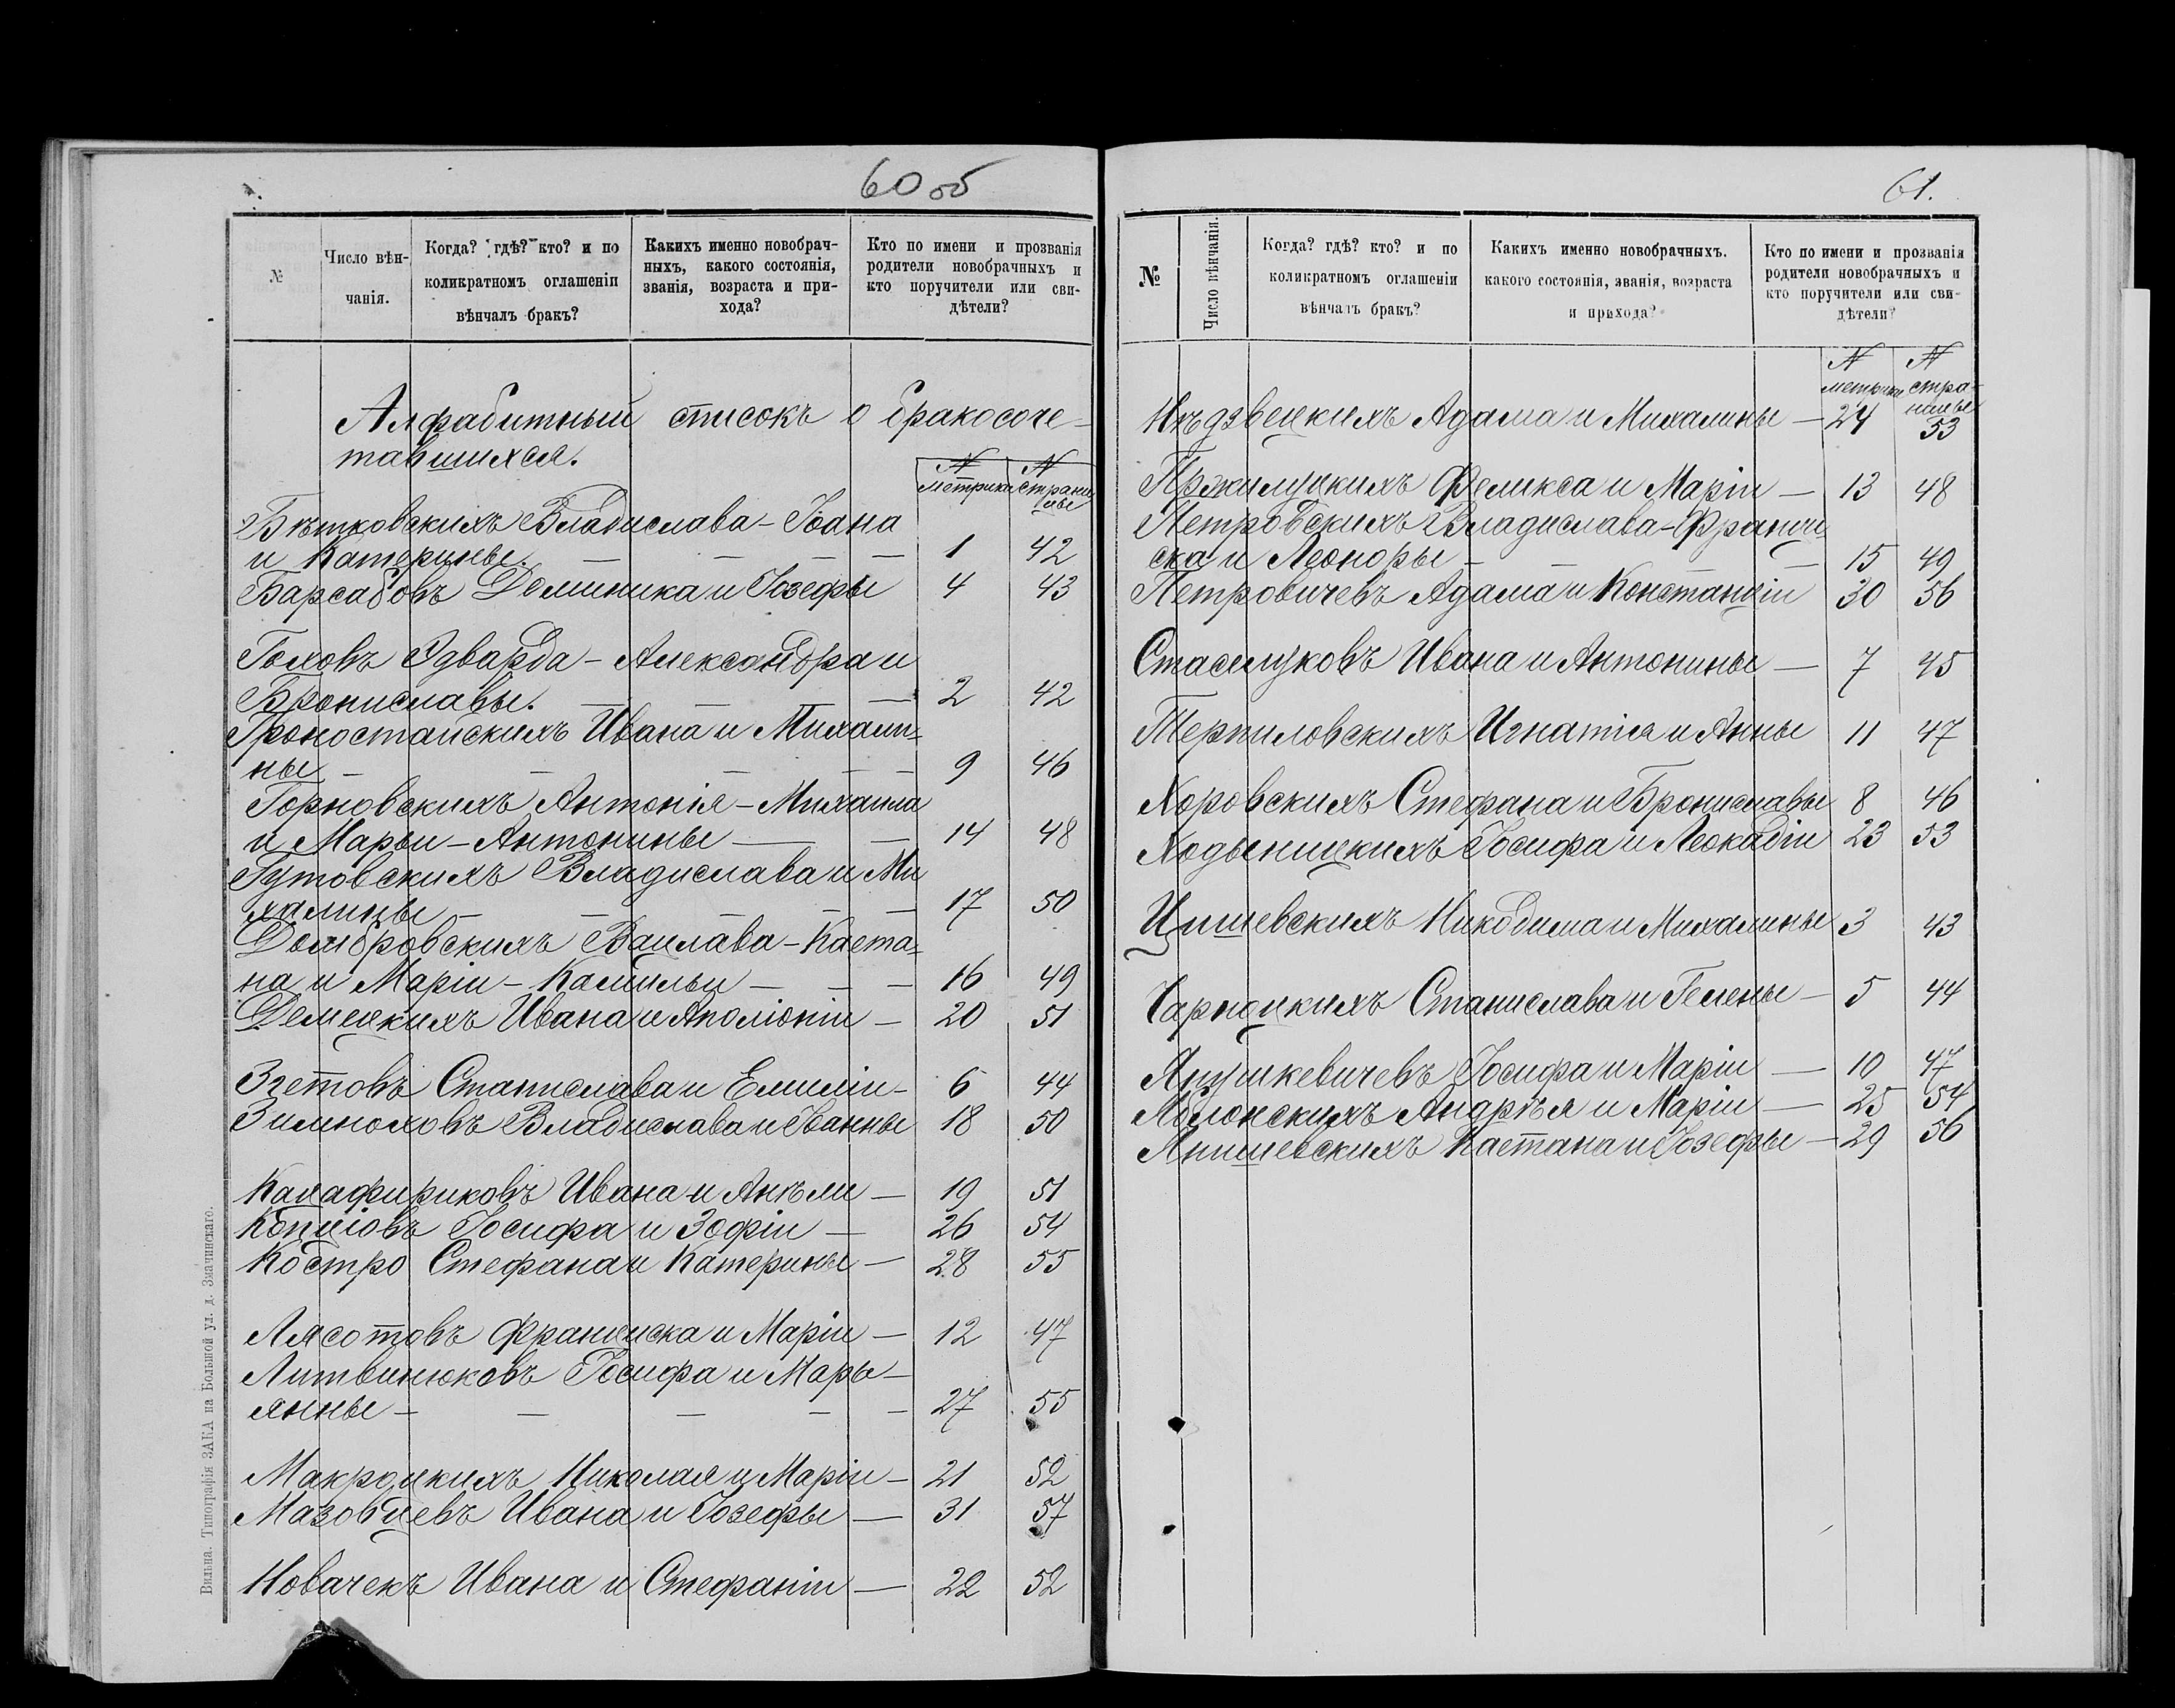 60 об
№
Число вѣн-
чанія.
Когда? гдѣ? кто? и по
коликратномъ оглашеніи
вѣнчалъ бракъ?
Какихъ именно новобрач-
ныхъ, какого состоянія,
званія, возраста и при-
хода?
Кто по имени и прозванія
родители новобрачныхъ и
кто поручители или сви-
дѣтели?
Алфабитный списокъ о бракосоче-
тавшихся.
N метрики N страницы
Бѣтковскихъ Владислава-Іоана
и Катерины. — — — — 1 42
Барсабовъ Доминика и Іозефы 4 43
Головъ Эдварда-Александра и
Брониславы. — — — 2 42
Гроностайскихъ Ивана и Михали-
ны — — — — — 9 46
Горновскихъ Антонія-Михаила
и Марьи-Антонины — — 14 48
Гутовскихъ Владислава и Ми
халины — — — — — 17 50
Домбровскихъ Вацлава-Каета-
на и Маріи-Камильи — — — 16 49
Демецкихъ Ивана и Аполіоніи — 20 51
Згетовъ Станислава и Емиліи — 6 44
Зимноховъ Владислава и Іоанны 18 50
Калафириковъ Ивана и Анѣли — 19 51
Копціовъ Іосифа и Зофіи — 26 54
Костро Стефана и Катерины — 28 55
Лясотовъ Франциска и Маріи — 12 47
Литвинюковъ Іосифа и Марь-
янны — — — — — 27 55
Макроцкихъ Николая и Маріи — 21 52
Мазовцевъ Ивана и Іозефы — 31 57
Новачекъ Ивана и Стефаніи — 22 52
Вильна. Типографія ЗАКА на Большой ул. д. Значинскаго.
61.
№
Число вѣнчанія.
Когда? гдѣ? кто? и по
коликратномъ оглашеніи
вѣнчалъ бракъ?
Какихъ именно новобрачныхъ.
какого состоянія, званія, возраста
и прихода?
Кто по имени и прозванія
родители новобрачныхъ и
кто поручители или сви-
дѣтели?
N метрики N страницы
Нѣдзвецкихъ Адама и Михалины — 24 53
Пржилуцкихъ Феликса и Маріи — 13 48
Петровскихъ Владислава-Франци
ска и Леоноры — — — — 15 49
Петровичевъ Адама и Констанціи 30 56
Стаселуковъ Ивана и Антонины — 7 45
Терпиловскихъ Игнатія и Анны 11 47
Хоровскихъ Стефана и Брониславы 8 46
Ходыницкихъ Іосифа и Леокадіи 23 53
Цишевскихъ Никодима и Михалины 3 43
Чарноцкихъ Станислава и Гелены — 5 44
Янушкевичевъ Іосифа и Маріи — 10 47
Яблонскихъ Андрѣя и Маріи — 25 54
Янишевскихъ Каетана и Іозефы — 29 56